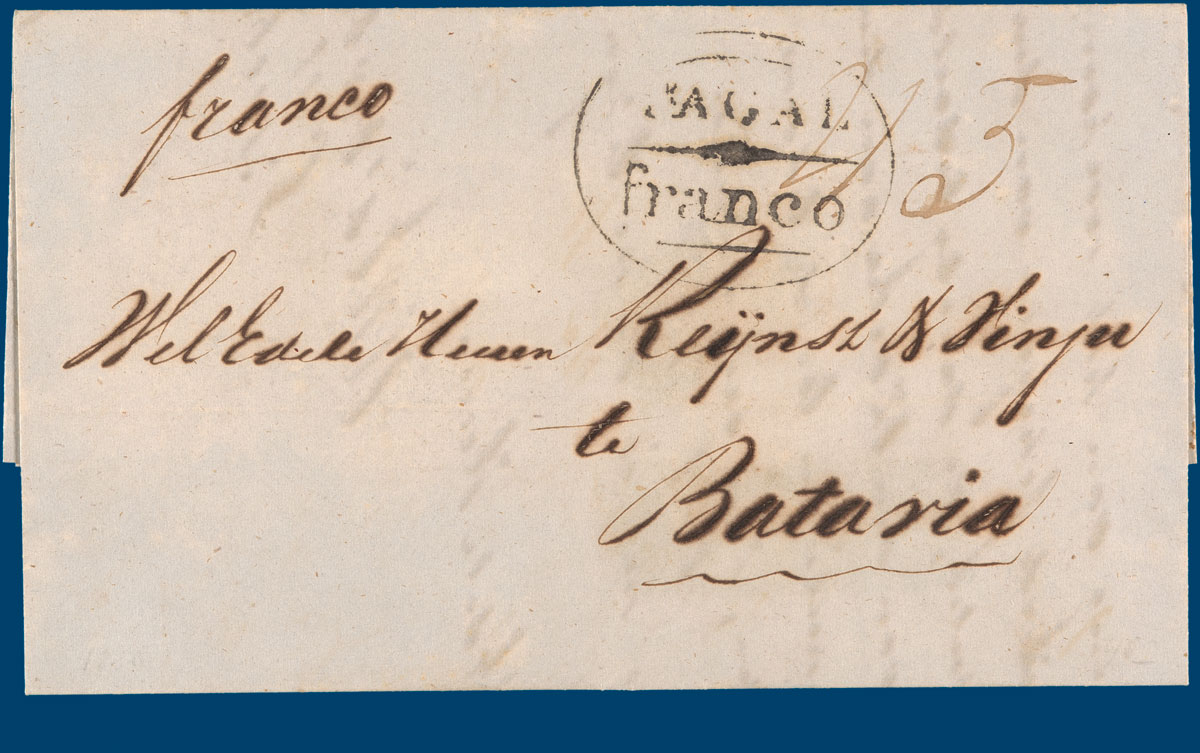 franco
TAGAL
franco
Wel Edele Heeren Reijnst & Vinju
te
Batavia